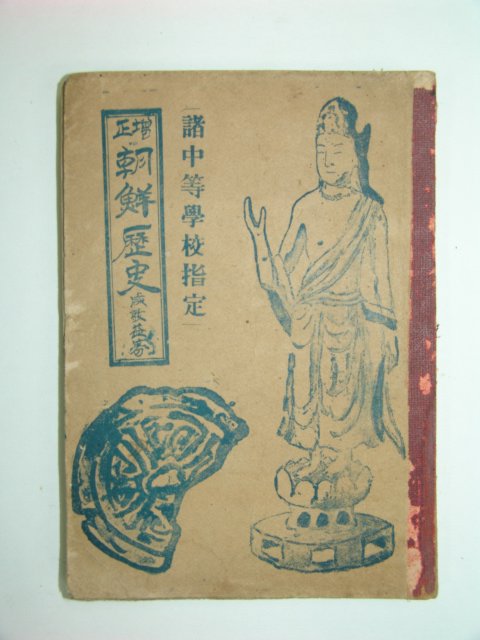 諸中等學校指定
增正
朝鮮歷史